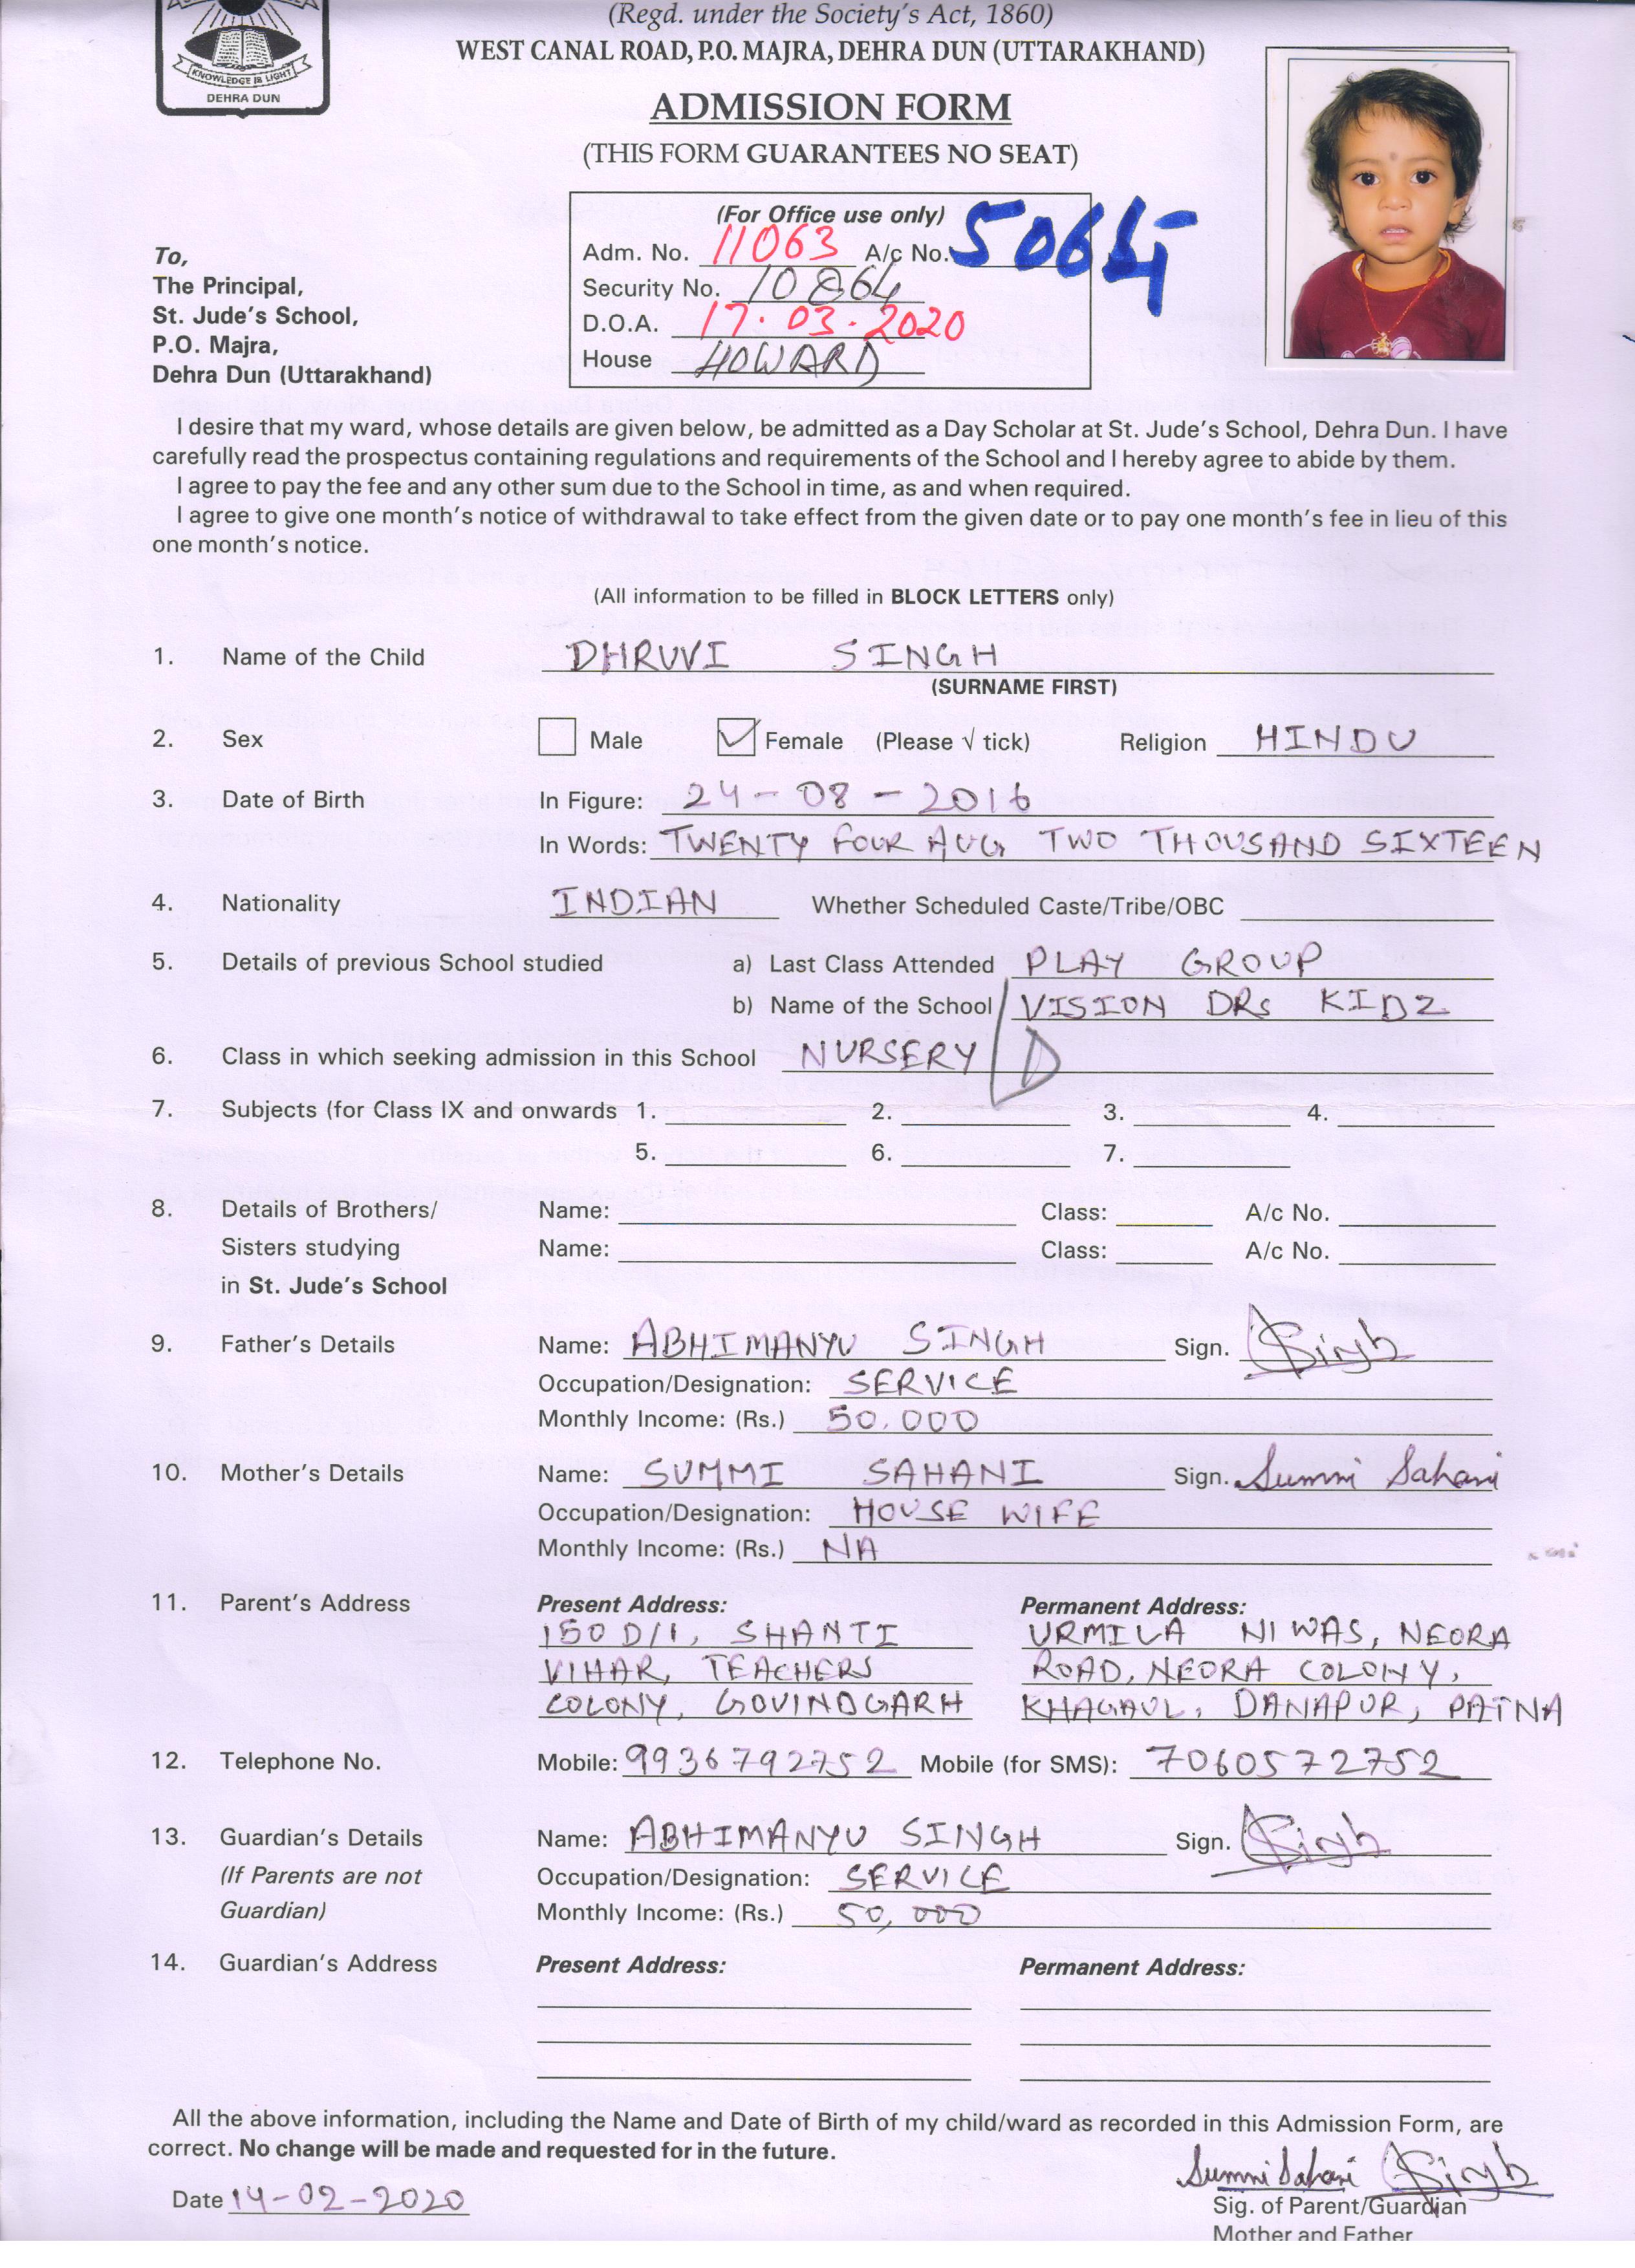 (Regd. under the Society's Act, 1860)
WEST CANAL ROAD, P.O. MAJRA, DEHRA DUN (UTTARAKHAND)
KNOWLEDGE IS LIGHT
DEHRA DUN
ADMISSION FORM
(THIS FORM GUARANTEES NO SEAT)
(For Office use only)
Adm. No. 11063 A/c No.
Security No. 10864
D.O.A. 17.03.2020
House HOWARD
To,
The Principal,
St. Jude's School,
P.O. Majra,
Dehra Dun (Uttarakhand)
I desire that my ward, whose details are given below, be admitted as a Day Scholar at St. Jude's School, Dehra Dun. I have
carefully read the prospectus containing regulations and requirements of the School and I hereby agree to abide by them.
I agree to pay the fee and any other sum due to the School in time, as and when required.
I agree to give one month's notice of withdrawal to take effect from the given date or to pay one month's fee in lieu of this
one month's notice.
(All information to be filled in BLOCK LETTERS only)
1. Name of the Child DHRUVI SINGH
(SURNAME FIRST)
2. Sex Male Female (Please √ tick) Religion HINDU
3. Date of Birth In Figure: 24-08-2016
In Words: TWENTY FOUR AUG TWO THOUSAND SIXTEEN
4. Nationality INDIAN Whether Scheduled Caste/Tribe/OBC
5. Details of previous School studied a) Last Class Attended PLAY GROUP
b) Name of the School VISION DRS KIDZ
6. Class in which seeking admission in this School NURSERY / D
7. Subjects (for Class IX and onwards 1. 2. 3. 4.
5. 6. 7.
8. Details of Brothers/ Name: Class: A/c No.
Sisters studying Name: Class: A/c No.
in St. Jude's School
9. Father's Details Name: ABHIMANYU SINGH Sign. Singh
Occupation/Designation: SERVICE
Monthly Income: (Rs.) 50,000
10. Mother's Details Name: SUMMI SAHANI Sign. Summi Sahani
Occupation/Designation: HOUSE WIFE
Monthly Income: (Rs.) NA
11. Parent's Address Present Address: Permanent Address:
150 D/1, SHANTI URMILA NIWAS, NEORA
VIHAR, TEACHERS ROAD, NEORA COLONY,
COLONY, GOVINDGARH KHAGAUL, DANAPUR, PATNA
12. Telephone No. Mobile: 9936792752 Mobile (for SMS): 7060572752
13. Guardian's Details Name: ABHIMANYU SINGH Sign. Singh
(If Parents are not Occupation/Designation: SERVICE
Guardian) Monthly Income: (Rs.) 50,000
14. Guardian's Address Present Address: Permanent Address:
All the above information, including the Name and Date of Birth of my child/ward as recorded in this Admission Form, are
correct. No change will be made and requested for in the future.
Summi Sahani Singh
Date 14-02-2020
Sig. of Parent/Guardian
Mother and Father